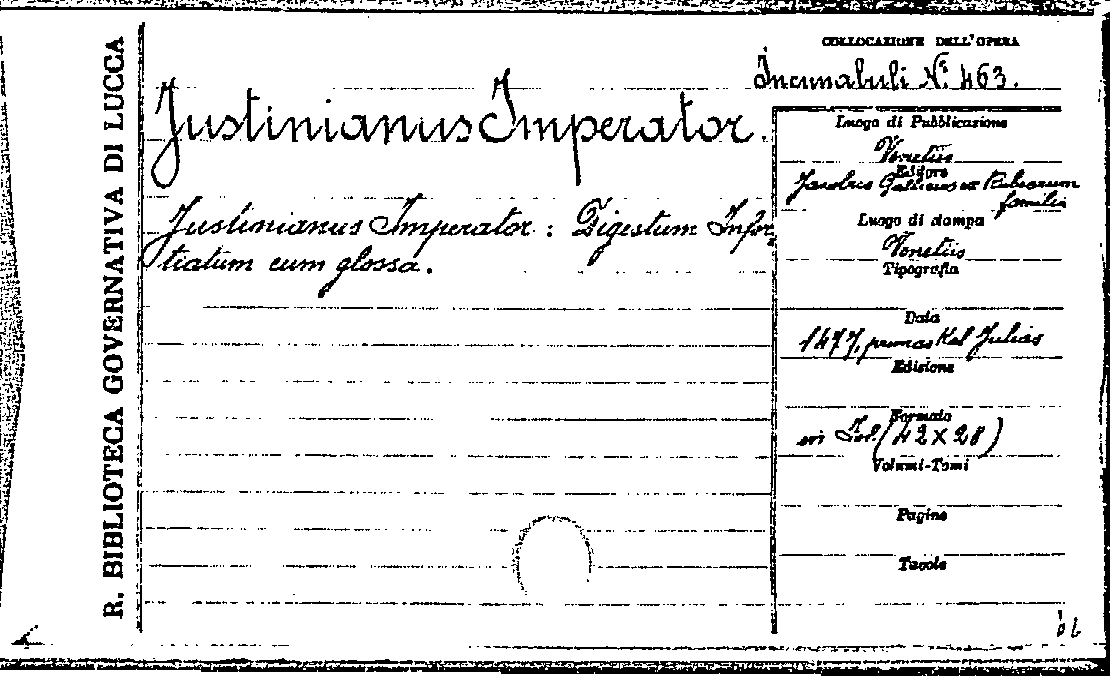 R. BIBLIOTECA GOVERNATIVA DI LUCCA
COLLOCAZIONE DELL'OPERA
Incunabuli N.º 463.
Justinianus Imperator.
Justinianus Imperator: Digestum Infor-
tiatum cum glossa.
Luogo di Pubblicazione
Venetiis
Editore
Jacobus Gallicus ex Rubeorum
familia
Luogo di stampa
Venetiis
Tipografia
Data
1477, primas Kal Julias
Edizione
Formato
in Fol. (42 x 28)
Volumi-Tomi
Pagine
Tavole